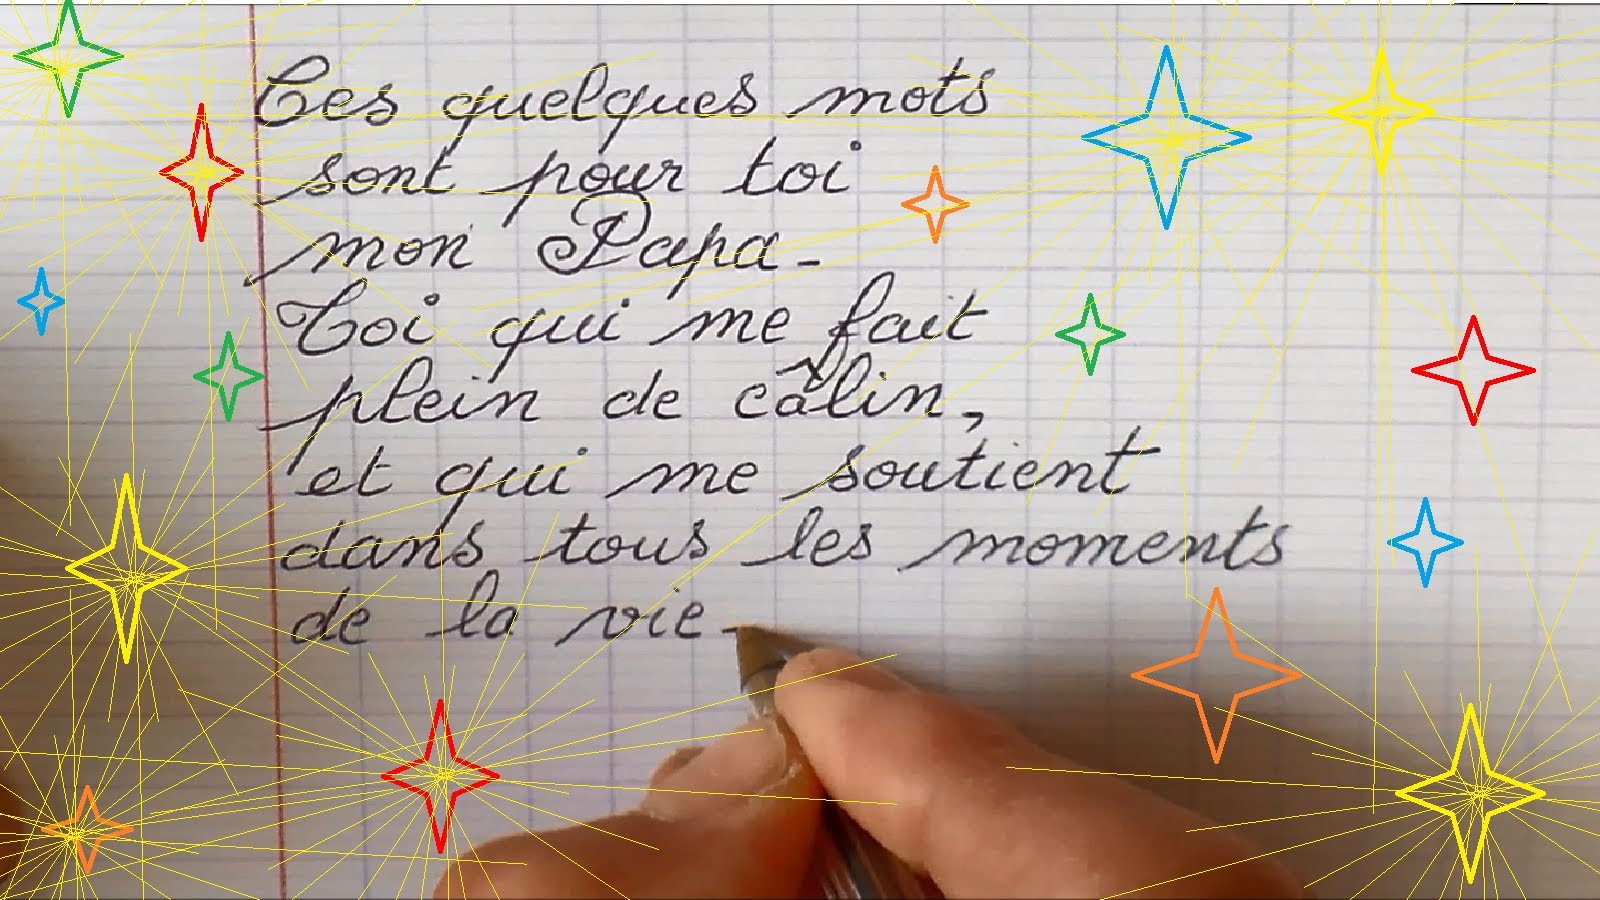 Ces quelques mots
sont pour toi
mon Papa-
Toi qui me fait
plein de câlin,
et qui me soutient
dans tous les moments
de la vie-